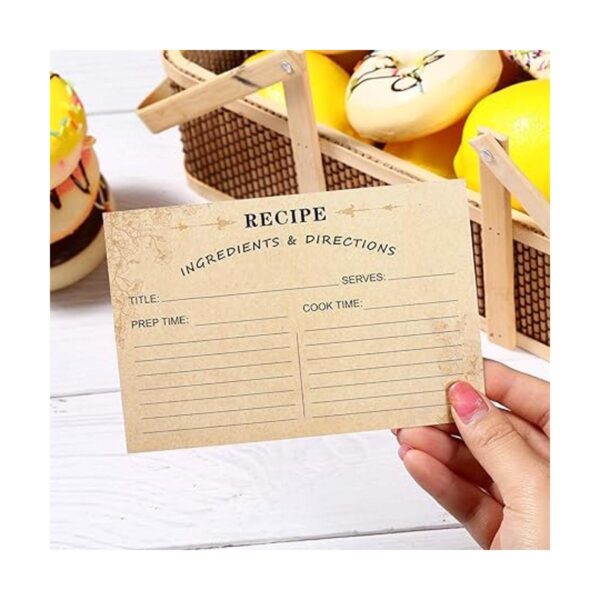 RECIPE
INGREDIENTS & DIRECTIONS
TITLE: SERVES:
PREP TIME: COOK TIME: